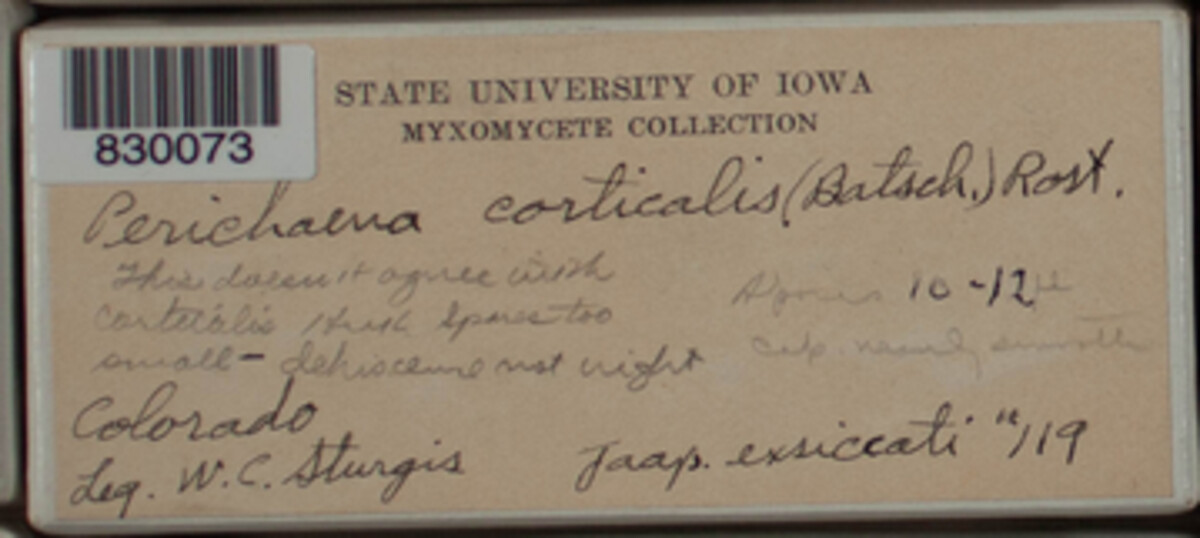 830073
STATE UNIVERSITY OF IOWA
MYXOMYCETE COLLECTION
Perichaena corticalis (Batsch.) Rost.
This doesn't agree with
corticalis spores too
small - dehiscence not right
Spores 10-12 µ
cap. nearly smooth
Colorado
Leg. W.C. Sturgis
Jaap. exsiccati 119